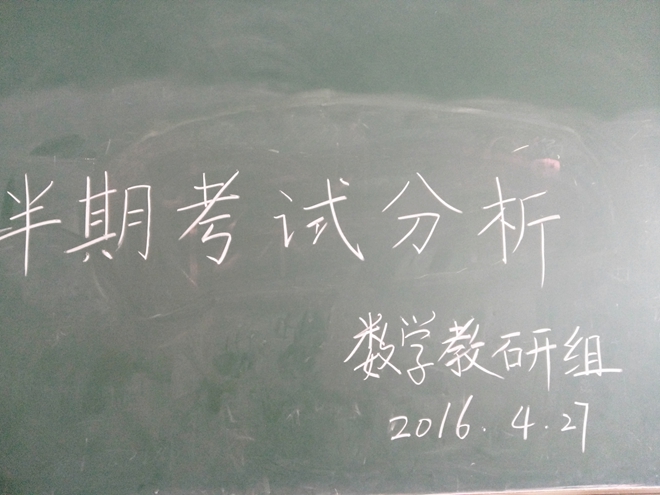 半期考试分析
数学教研组
2016.4.27